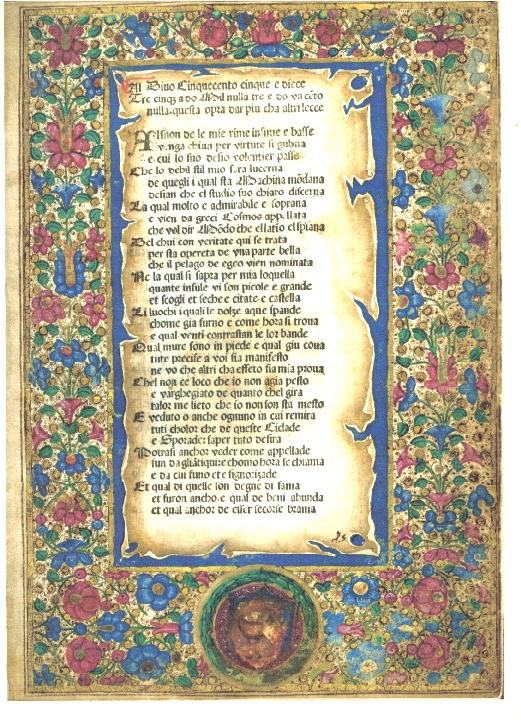 Al Divo Cinquecento cinque e diece
Tre cinqȝ a do Mil nulla tre e do vn cēto
nulla. questa opra dar piu cha altri lecce
Al suon de le mie rime infime e basse
venga chiun per virtute si gubna
e cui lo suo desio volentier passe
Che lo debil stil mio sara lucerna
de quegli i qual sta Machina mōdana
desian che el studio suo chiaro discerna
La qual molto e admirabile e soprana
e vien da greci Cosmos appellata
che vol dir Mōdo che ellatio el spiana
Del chui con veritate qui se trata
per sta opereta de vna parte bella
che il pelago de egeo vien nominata
Ne la qual si sapra per mia loquella
quante insule vi son picole e grande
et scogli et seche e citate e castella
Li luochi i quali e dolze aque spande
chome gia furno e come hora si trova
e qual venti contrastan le lor bande
Qual mure sono in piede e qual giu cova
tute precise a voi sia manifesto
ne vo che altri cha effeto sia mia prova
Chel non ce loco che io non agia pesto
e varghegiato de quanto chel gira
talor me lieto che io non son sta mesto
E veduto o anche ognuno in cui remira
tuti cholor che de queste Ciclade
e Sporade: saper tuto desira
Potrasi anchor veder come appellade
fun da gli ātiqui: e chomo hora se chiama
e da cui funo et e signorizade
Et qual di quelle son degne di fama
et furon ancho. e qual de beni abunda
et qual anchor de esser secorse brama